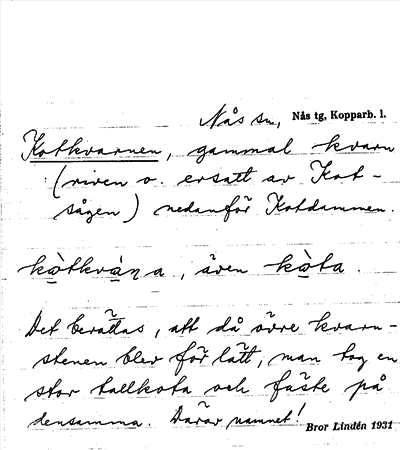 Nås sn, Nås tg, Kopparb. l.
Kotkvarnen, gammal kvarn
(riven o. ersatt av Kot-
sågen) nedanför Kotdammen.
kòtkvàṇa, även kòta.
Det berättas, att då övre kvarn-
stenen blev för lätt, man tog en
stor tallkota och fäste på
densamma. Därav namnet!
Bror Lindén 1931